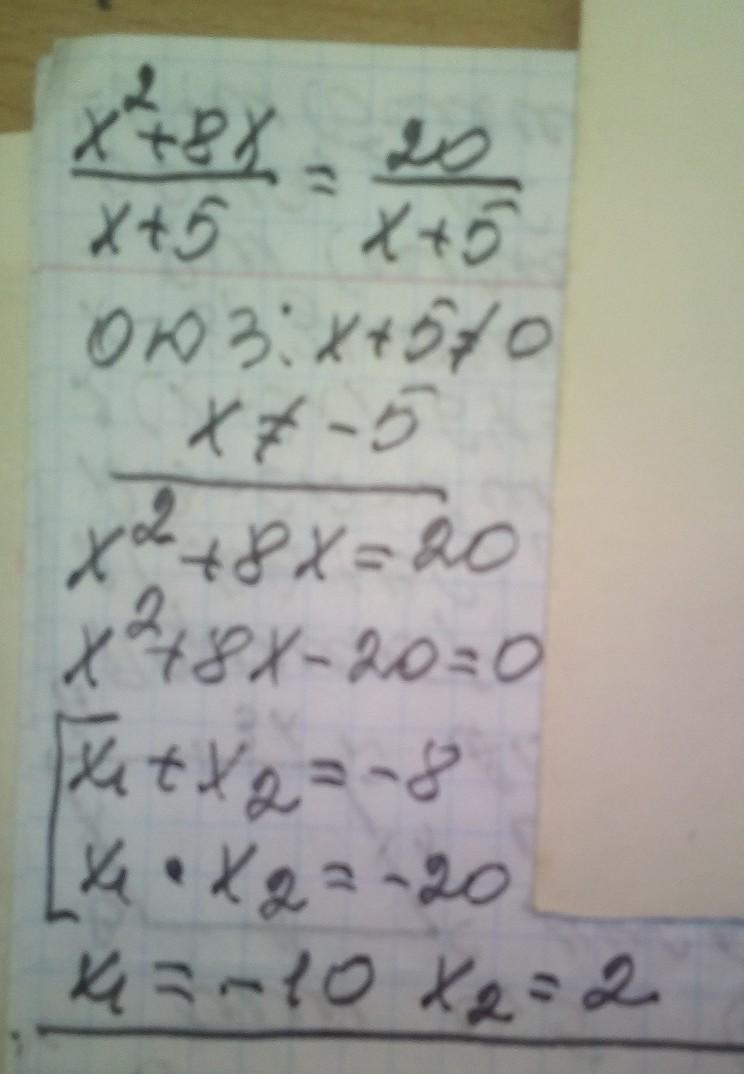 x²+8x / x+5 = 20 / x+5
ОДЗ: x+5≠0
x≠-5
x²+8x=20
x²+8x-20=0
[x₁+x₂=-8
x₁·x₂=-20
x₁=-10 x₂=2